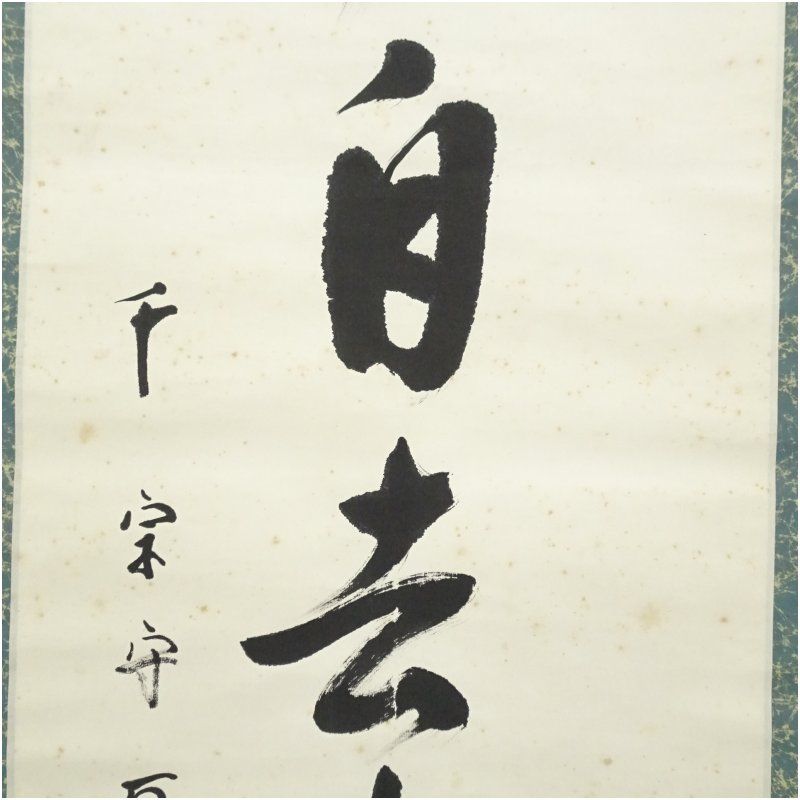 自去
千宗守